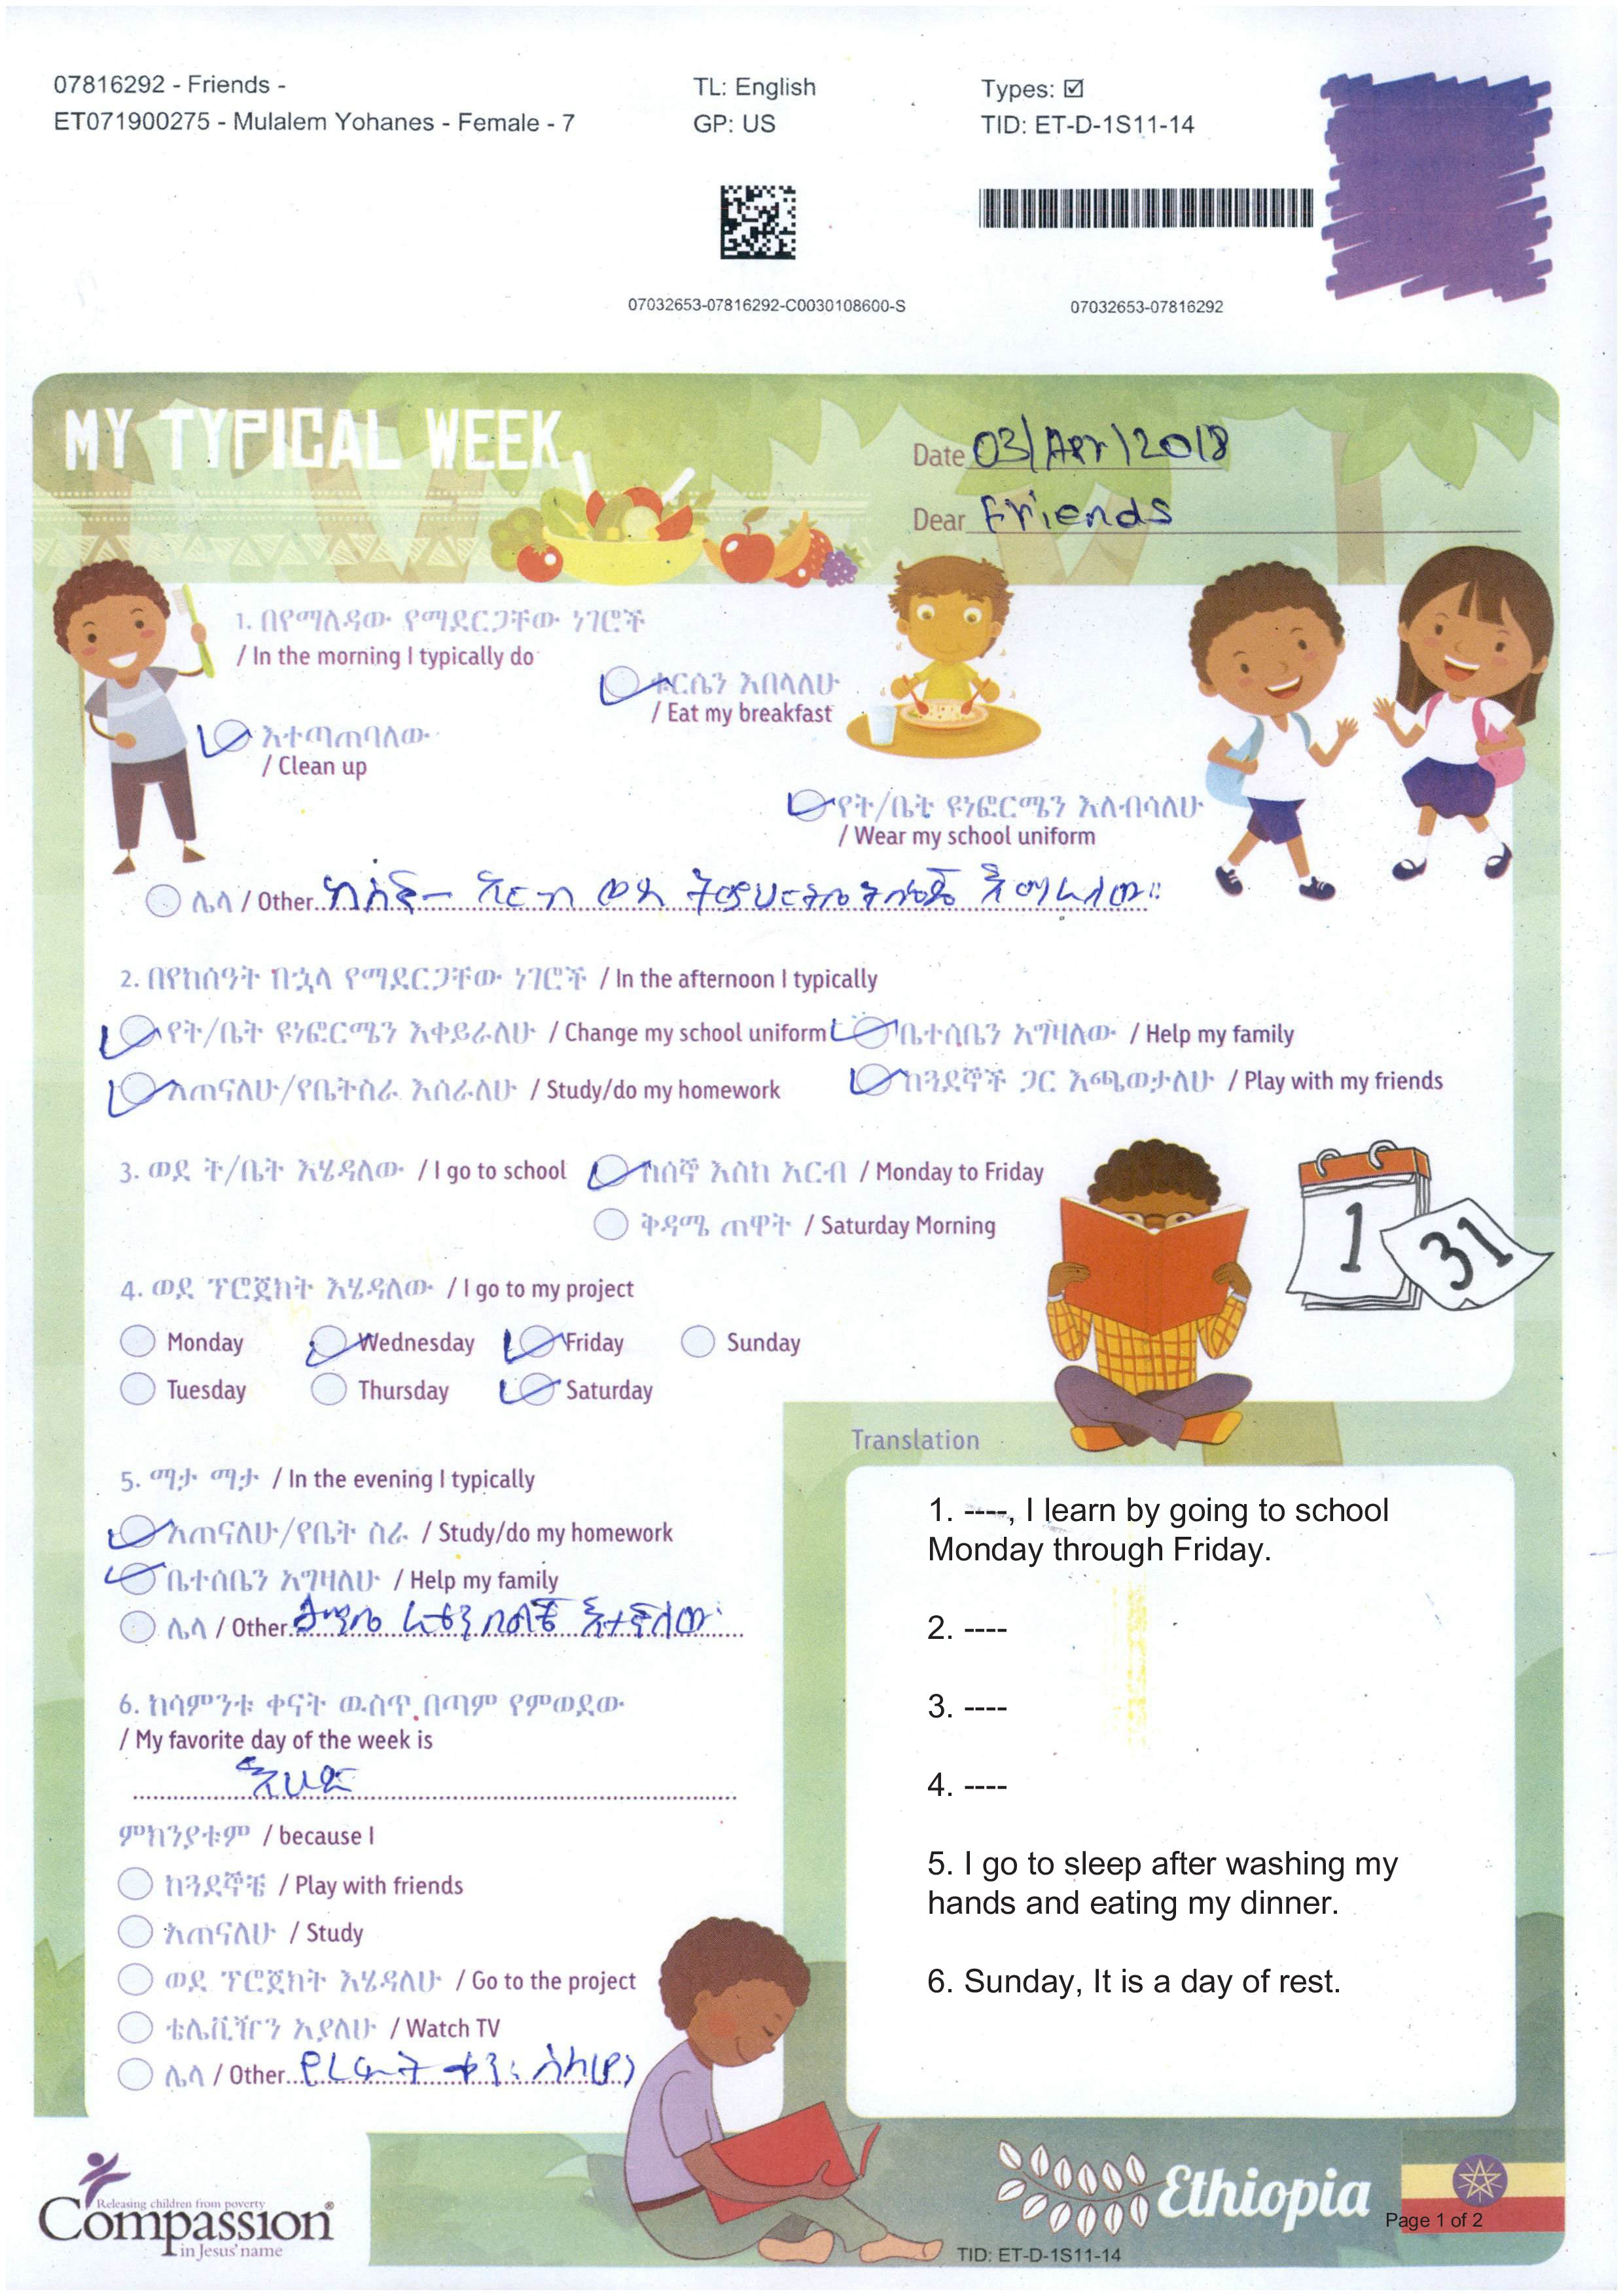 07816292 - Friends -
ET071900275 - Mulalem Yohanes - Female - 7
TL: English
GP: US
Types: ☑
TID: ET-D-1S11-14
07032653-07816292-C0030108600-S
07032653-07816292
MY TYPICAL WEEK
Date 03/Apr/2018
Dear Friends
1. በየማለዳው የማደርጋቸው ነገሮች
/ In the morning I typically do
ቁርሴን እበላለሁ
/ Eat my breakfast
እተጣጠባለው
/ Clean up
የት/ቤት ዩነፎርሜን እለብሳለሁ
/ Wear my school uniform
ሌላ / Other ከሰኞ - አርብ ወደ ትምህርት ቤት በመሄድ እማራለው።
2. በየከሰዓት በኋላ የማደርጋቸው ነገሮች / In the afternoon I typically
የት/ቤት ዩነፎርሜን እቀይራለሁ / Change my school uniform
ቤተሰቤን አግዛለው / Help my family
አጠናለሁ/የቤትስራ እሰራለሁ / Study/do my homework
ከጓደኞች ጋር እጫወታለሁ / Play with my friends
3. ወደ ት/ቤት እሄዳለው / I go to school
ከሰኞ እስከ አርብ / Monday to Friday
ቅዳሜ ጠዋት / Saturday Morning
1
31
4. ወደ ፕሮጀክት እሄዳለው / I go to my project
Monday Wednesday Friday Sunday
Tuesday Thursday Saturday
5. ማታ ማታ / In the evening I typically
አጠናለሁ/የቤት ስራ / Study/do my homework
ቤተሰቤን አግዛለሁ / Help my family
ሌላ / Other ታጥቤ ራቴን በልቼ እተኛለው
6. ከሳምንቱ ቀናት ዉስጥ በጣም የምወደው
/ My favorite day of the week is
እሁድ
ምክንያቱም / because I
ከጓደኞቼ / Play with friends
አጠናለሁ / Study
ወደ ፕሮጀክት እሄዳለሁ / Go to the project
ቴሌቪዥን አያለሁ / Watch TV
ሌላ / Other የረፍት ቀን ስለሆነ
Translation
1. ----, I learn by going to school
Monday through Friday.
2. ----
3. ----
4. ----
5. I go to sleep after washing my
hands and eating my dinner.
6. Sunday, It is a day of rest.
Releasing children from poverty
Compassion®
in Jesus' name
Ethiopia
Page 1 of 2
TID: ET-D-1S11-14